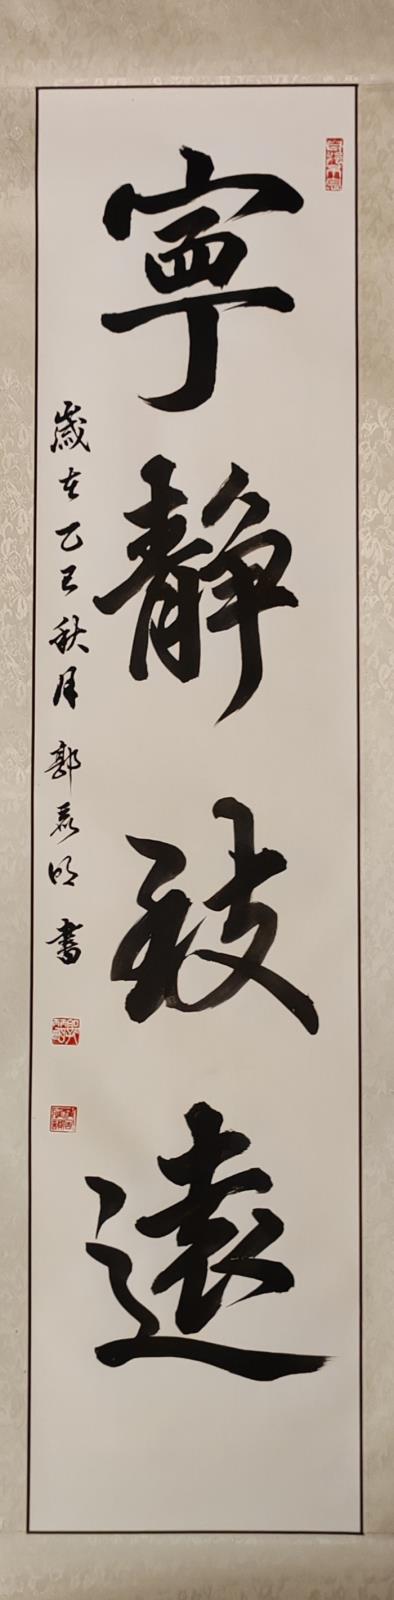 寧靜致遠
歲在乙巳秋月郭磊明書